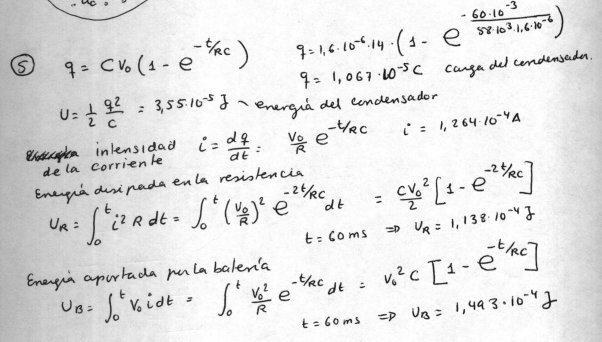 ·uc·
⑤ q = CV₀ (1 - e^(-t/RC))   q = 1,6·10⁻⁶·14·(1 - e^(-60·10⁻³/(58·10³·1,6·10⁻⁶)))
q = 1,067·10⁻⁵ C   carga del condensador.
U = 1/2 q²/C = 3,55·10⁻⁵ J ~ energía del condensador
intensidad de la corriente   i = dq/dt = V₀/R e^(-t/RC)   i = 1,264·10⁻⁴ A
Energía disipada en la resistencia
U_R = ∫₀ᵗ i² R dt = ∫₀ᵗ (V₀/R)² e^(-2t/RC) dt = CV₀²/2 [1 - e^(-2t/RC)]
t = 60 ms ⇒ U_R = 1,138·10⁻⁴ J
Energía aportada por la batería
U_B = ∫₀ᵗ V₀ i dt = ∫₀ᵗ V₀²/R e^(-t/RC) dt = V₀² C [1 - e^(-t/RC)]
t = 60 ms ⇒ U_B = 1,493·10⁻⁴ J